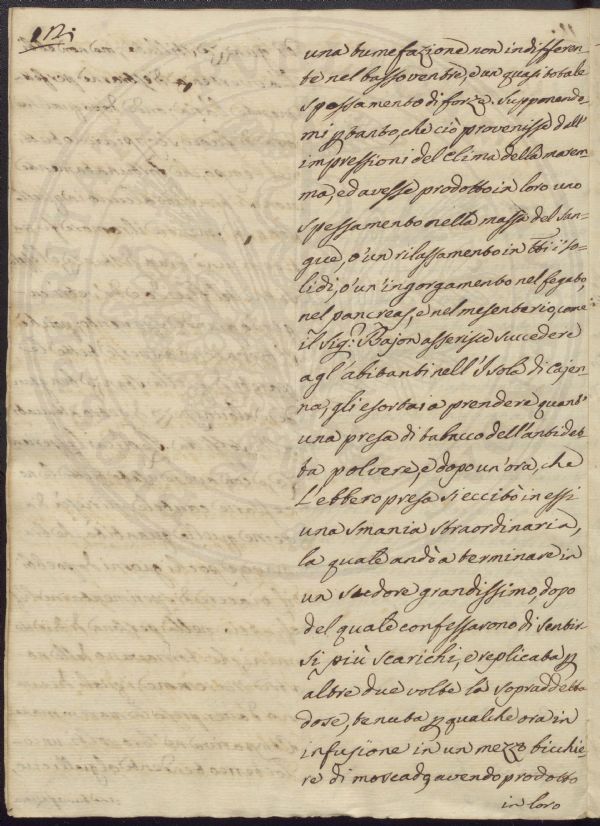 una tumefazione non indifferen-
te nel bassoventre, e un quasi totale
spossamento di forze. Supponendo-
mi p tanto, che ciò provenisse dall'
impressioni del Clima della marem-
ma, ed avesse prodotto in loro uno
spessamento nella massa del san-
gue, o un rilassamento in tti i so-
lidi, o un'ingorgamento nel fegato,
nel pancreas, e nel mesenterio, come
il Sig:r Bajon asserisce succedere
agl'abitanti nell'Isola di Cajen-
na, gli esortai a prendere quant'
una presa di tabacco dell'antidet-
ta polvere, e dopo un'ora, che
l'ebbero presa si eccitò in essi
una smania straordinaria,
la quale andò a terminare in
un sudore grandissimo, dopo
del quale confessarono di sentir-
si più scarichi, e replicata p
altre due volte la sopraddetta
dose, tenuta p qualche ora in
infusione in un mezzo bicchie-
re di moscado, avendo prodotto
in loro